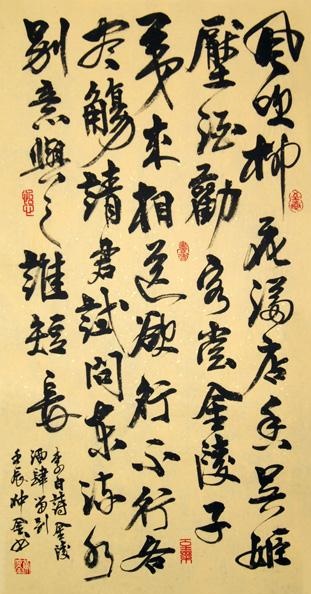 風吹柳花滿店香吳姬
壓酒勸客嘗金陵子
弟來相送欲行不行各
尽觴請君試問東流水
別意與之誰短長
李白詩金陵
酒肆留別
壬辰仲